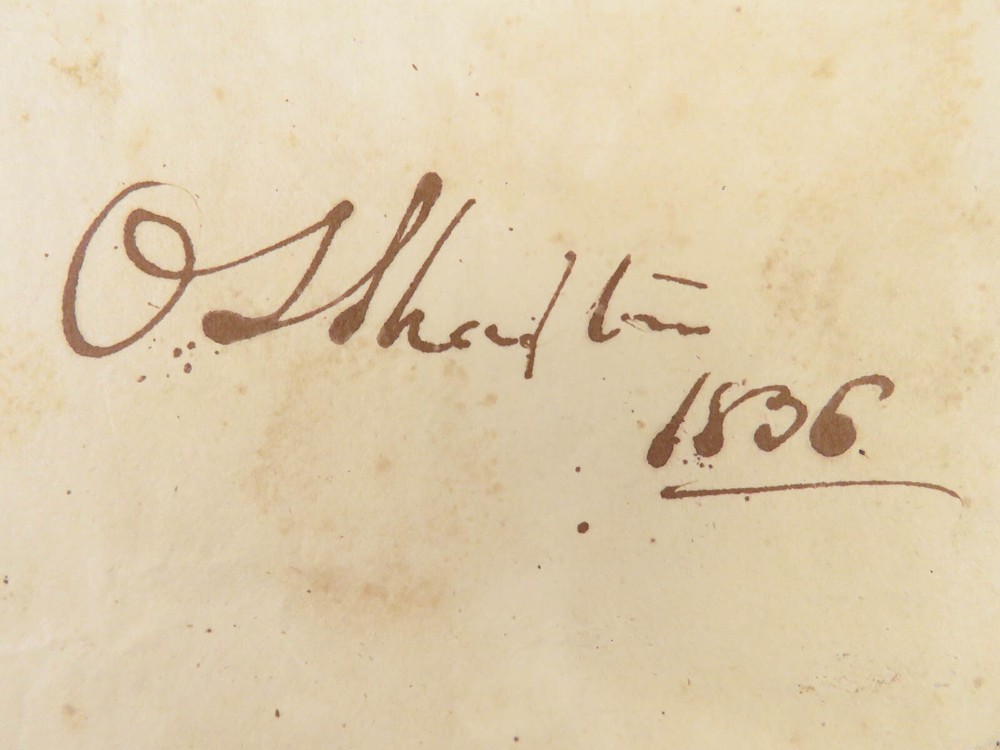 O Shafton
1836